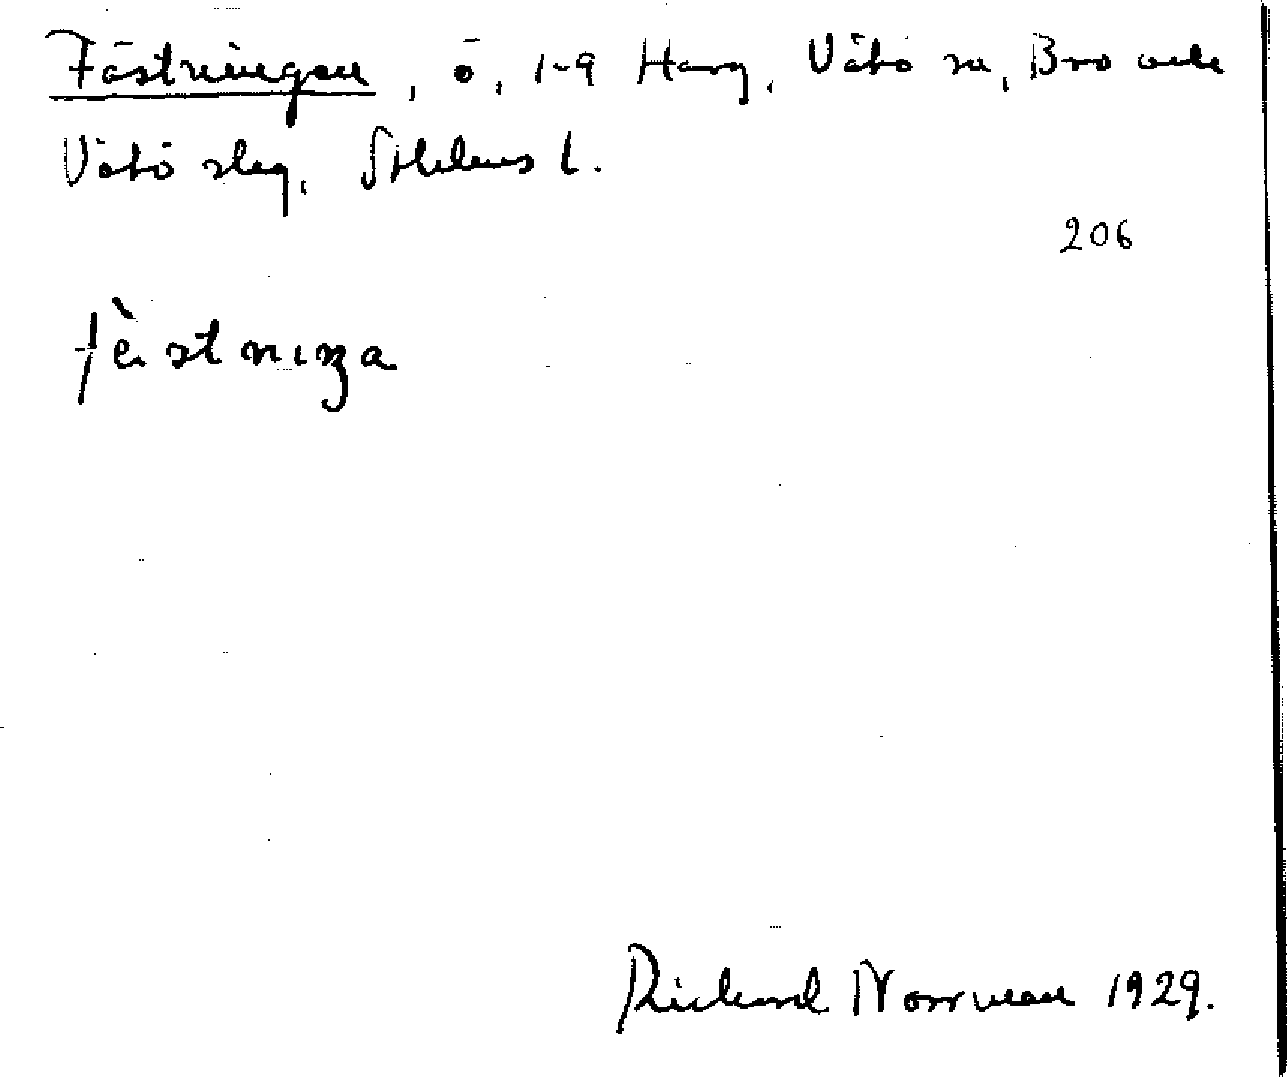 Fästningen, ö, 1-9 Harg, Vätö sn, Bro och
Vätö slag, Sthlms l.
206
fèstniŋa
Rickard Norrman 1929.